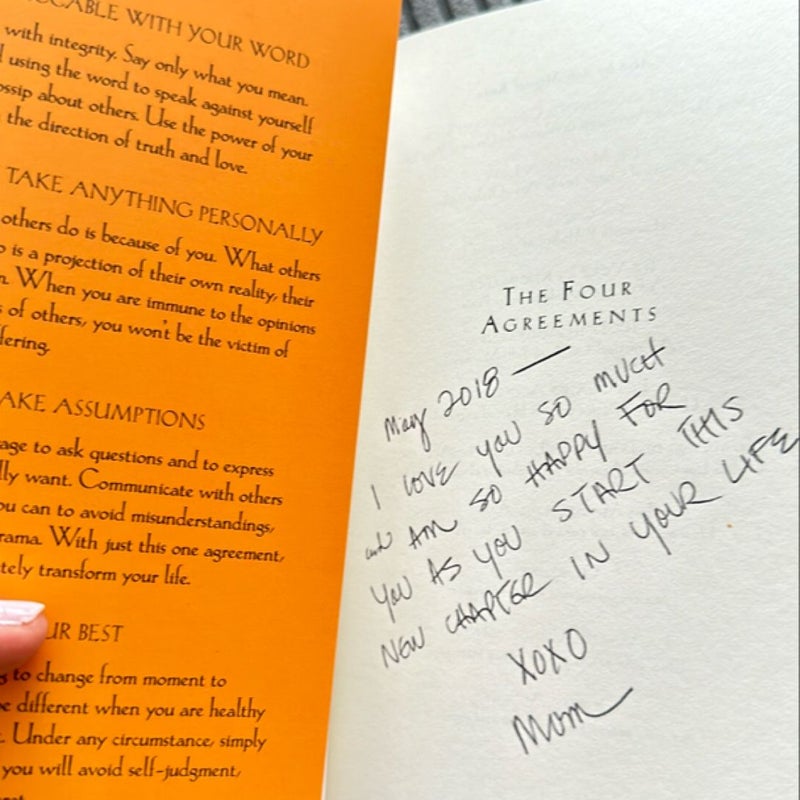 CCABLE WITH YOUR WORD
with integrity. Say only what you mean.
using the word to speak against yourself
ossip about others. Use the power of your
the direction of truth and love.
TAKE ANYTHING PERSONALLY
others do is because of you. What others
o is a projection of their own reality, their
n. When you are immune to the opinions
s of others, you won't be the victim of
fering.
AKE ASSUMPTIONS
age to ask questions and to express
lly want. Communicate with others
ou can to avoid misunderstandings,
rama. With just this one agreement,
tely transform your life.
UR BEST
s to change from moment to
e different when you are healthy
. Under any circumstance, simply
you will avoid self-judgment,
THE FOUR
AGREEMENTS
May 2018 —
I LOVE YOU SO MUCH
and AM SO HAPPY FOR
YOU AS YOU START THIS
NEW CHAPTER IN YOUR LIFE
XOXO
Mom